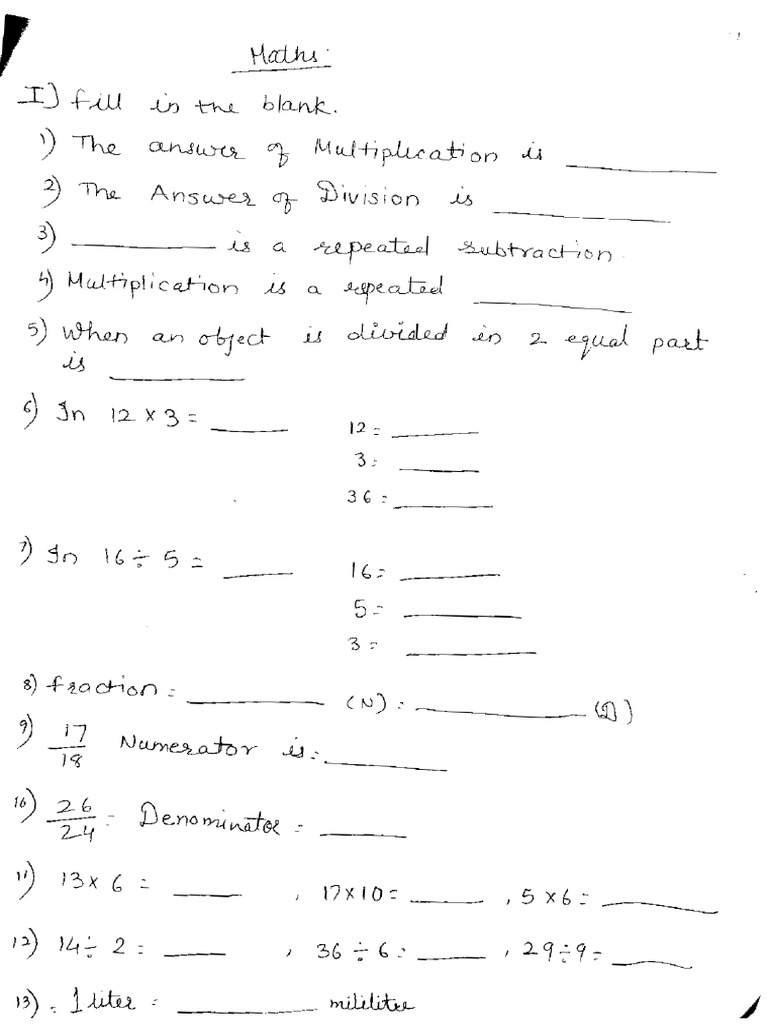 Maths.
I) fill in the blank.
1) The answer of Multiplication is ________
2) The Answer of Division is ________
3) ________ is a repeated subtraction.
4) Multiplication is a repeated ________
5) When an object is divided in 2 equal part
is ________
6) In 12 x 3 = ____ 12 = ____
3 = ____
36 = ____
7) In 16 ÷ 5 = ____ 16 = ____
5 = ____
3 = ____
8) fraction = ________ (N) : ________ (D)
9) 17/18 Numerator is = ________
10) 26/24 = Denominator = ____
11) 13 x 6 = ____ , 17 x 10 = ____ , 5 x 6 = ____
12) 14 ÷ 2 = ____ , 36 ÷ 6 = ____ , 29 ÷ 9 = ____
13) . 1 liter = ________ mililitre